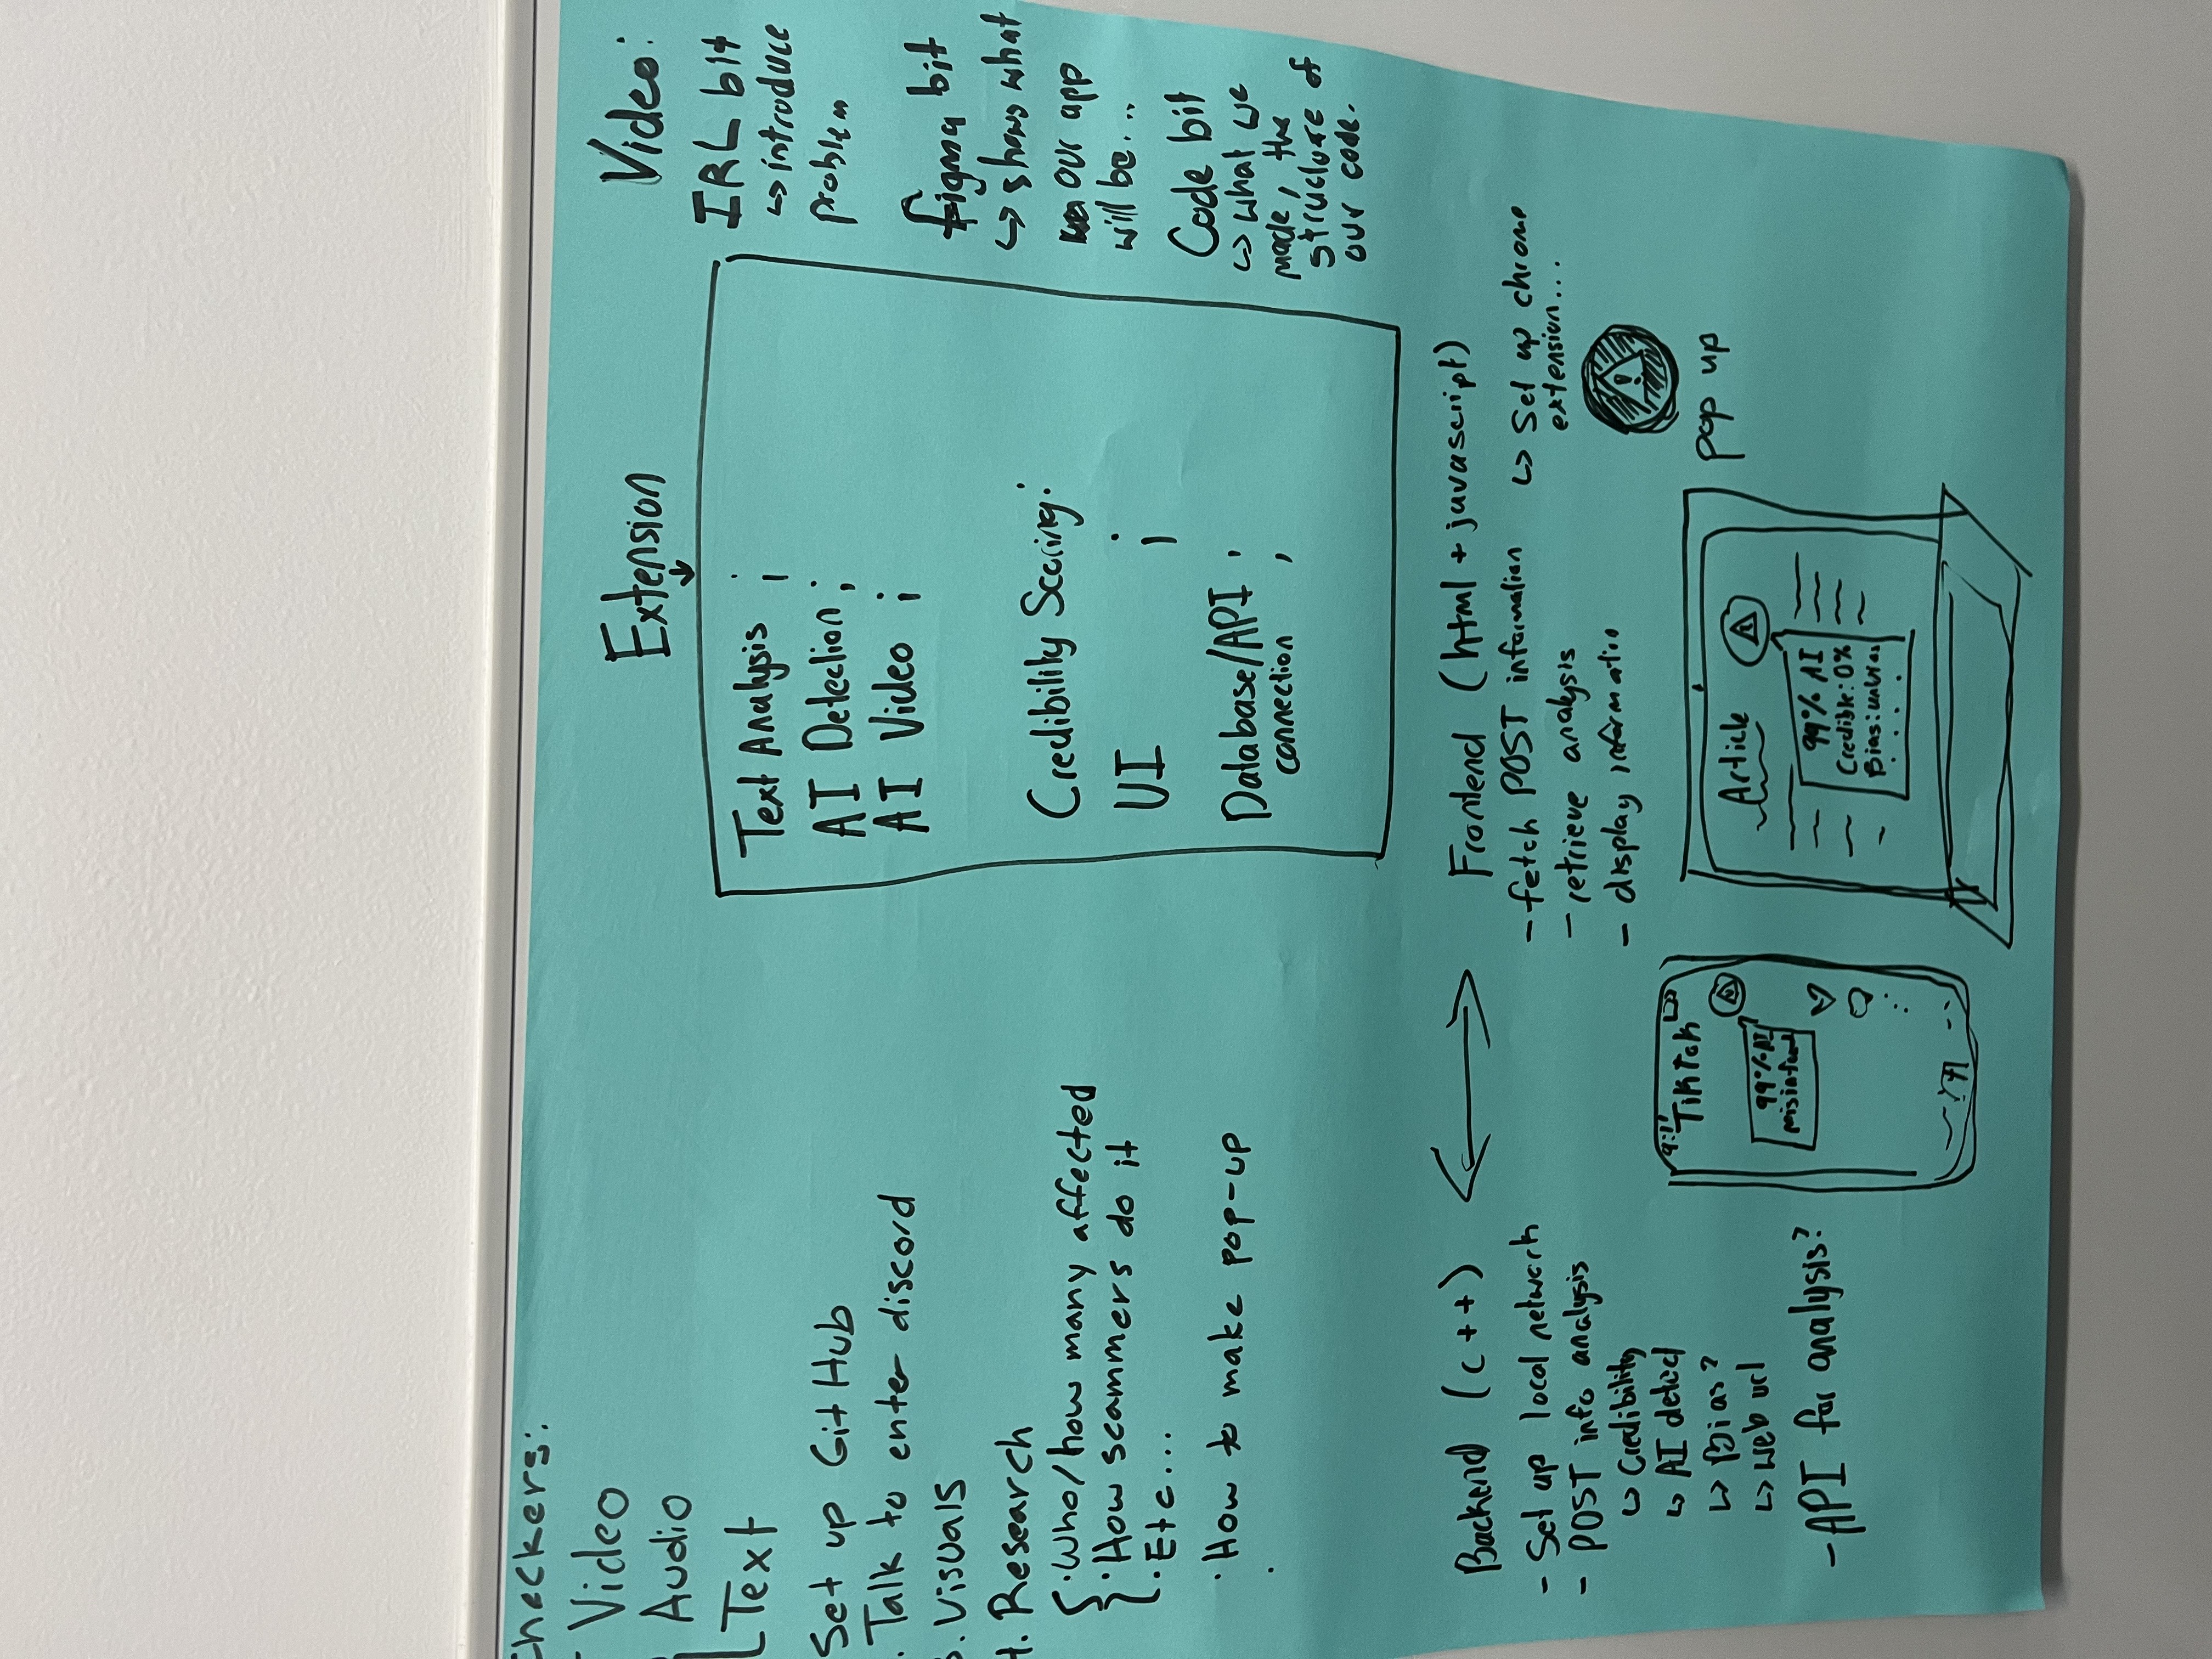 Checkers:
Video
Audio
Text
Set up GitHub
Talk to enter discord
Visuals
4. Research
· Who/how many affected
· How scammers do it
· Etc....
· How to make pop-up
·
Extension
Text Analysis ;
AI Detection ;
AI Video ;
Credibility Scoring:
UI ;
Database/API ;
connection ;
Video:
IRL bit
↳ introduce
problem
figma bit
↳ shows what
our app
will be...
Code bit
↳ what we
made, the
structure of
our code.
Backend (c++)
- Set up local network
- POST info analysis
↳ Credibility
↳ AI detect
↳ Bias?
↳ Web url
- API for analysis?
Frontend (html + javascript)
- fetch POST information
- retrieve analysis
- display informatio
↳ Set up chrome
extension...
TikTok
99% AI
Article
99% AI
Credible: 0%
Bias: unbias
!
pop up